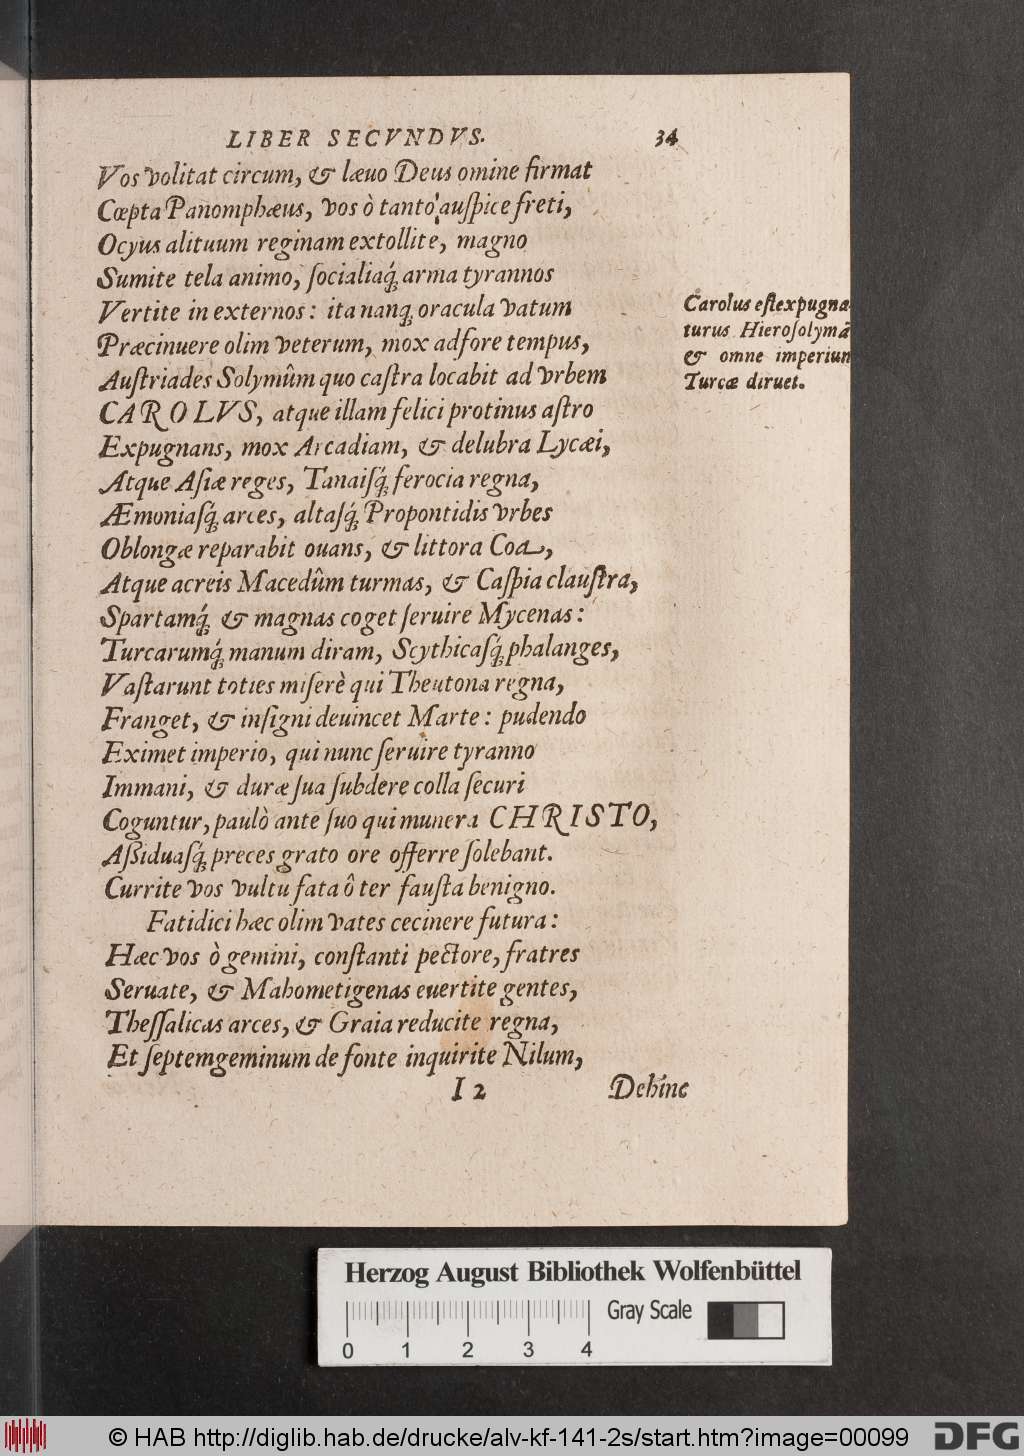 LIBER SECVNDVS. 34
Vos volitat circum, & læuo Deus omine firmat
Cœpta Panomphæus, vos ò tanto auſpice freti,
Ocyus alituum reginam extollite, magno
Sumite tela animo, ſocialiaq́; arma tyrannos
Vertite in externos: ita nanq; oracula vatum
Præcinuere olim veterum, mox adfore tempus,
Auſtriades Solymûm quo caſtra locabit ad vrbem
CAROLVS, atque illam felici protinus aſtro
Expugnans, mox Arcadiam, & delubra Lycæi,
Atque Aſiæ reges, Tanaiſq́; ferocia regna,
Æmoniaſq́; arces, altaſq́; Propontidis vrbes
Oblongæ reparabit ouans, & littora Coa,
Atque acreis Macedûm turmas, & Caſpia clauſtra,
Spartamq́; & magnas coget ſeruire Mycenas:
Turcarumq́; manum diram, Scythicaſq́; phalanges,
Vaſtarunt toties miſerè qui Theutona regna,
Franget, & inſigni deuincet Marte: pudendo
Eximet imperio, qui nunc ſeruire tyranno
Immani, & duræ ſua ſubdere colla ſecuri
Coguntur, paulò ante ſuo qui munera CHRISTO,
Aßiduaſq́; preces grato ore offerre ſolebant.
Currite vos vultu fata ô ter fauſta benigno.
Fatidici hæc olim vates cecinere futura:
Hæc vos ò gemini, conſtanti pectore, fratres
Seruate, & Mahometigenas euertite gentes,
Theſſalicas arces, & Graia reducite regna,
Et ſeptemgeminum de fonte inquirite Nilum,
I 2 Dehinc
Carolus eſt expugna-
turus Hieroſolymā
& omne imperium
Turcæ diruet.
Herzog August Bibliothek Wolfenbüttel
Gray Scale
0 1 2 3 4
© HAB http://diglib.hab.de/drucke/alv-kf-141-2s/start.htm?image=00099
DFG